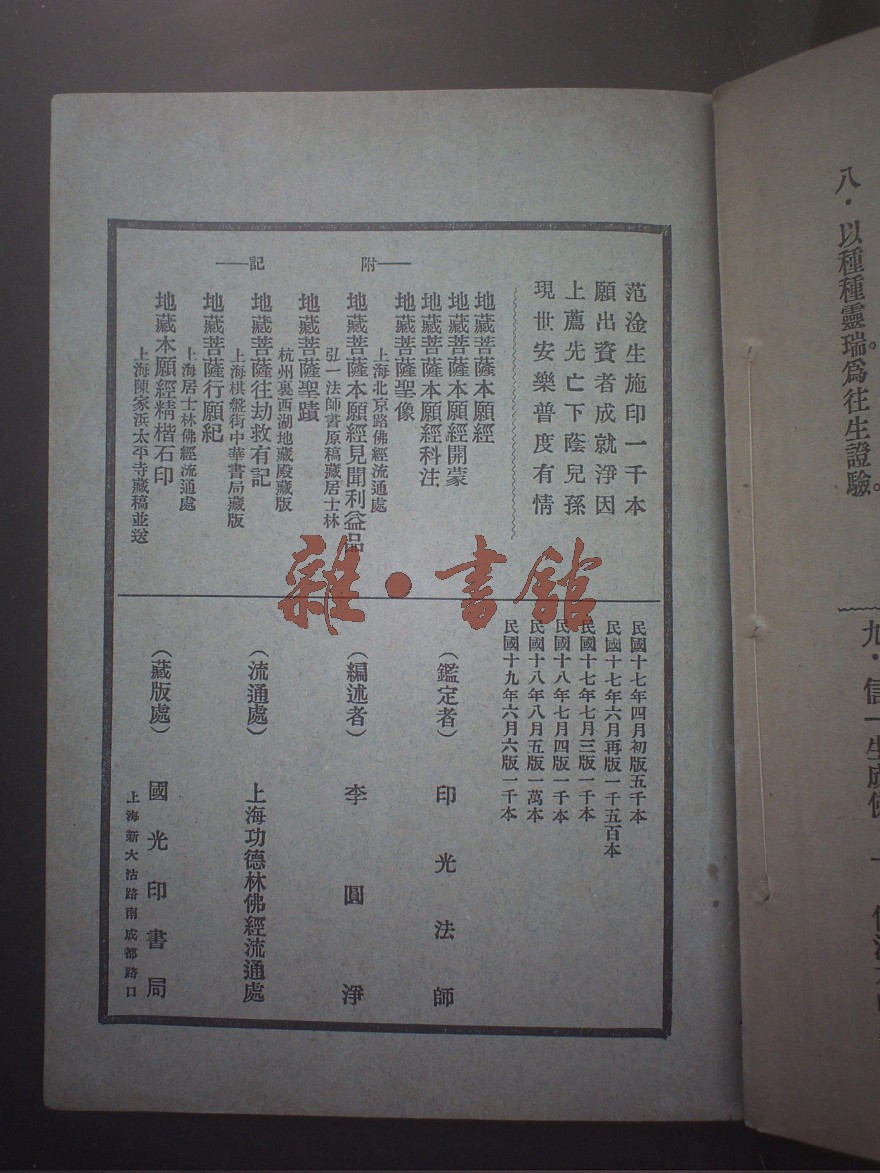 八・以種種靈瑞。爲往生證驗。
九・信一生處佛
范淦生施印一千本
願出資者成就淨因
上薦先亡下蔭兒孫
現世安樂普度有情
附記
地藏菩薩本願經
地藏菩薩本願經開蒙
地藏菩薩本願經科注
地藏菩薩聖像
上海北京路佛經流通處
地藏菩薩本願經見聞利益品
弘一法師書原稿藏居士林
地藏菩薩聖蹟
杭州裏西湖地藏殿藏版
地藏菩薩往劫救有記
上海棋盤街中華書局藏版
地藏菩薩行願紀
上海居士林佛經流通處
地藏本願經精楷石印
上海陳家浜太平寺藏稿並送
民國十七年四月初版五千本
民國十七年六月再版一千五百本
民國十七年七月三版一千本
民國十八年七月四版一千本
民國十八年八月五版一萬本
民國十九年六月六版一千本
（鑑定者）印光法師
（編述者）李圓淨
（流通處）上海功德林佛經流通處
（藏版處）國光印書局
上海新大沽路南成都路口
雜・書館